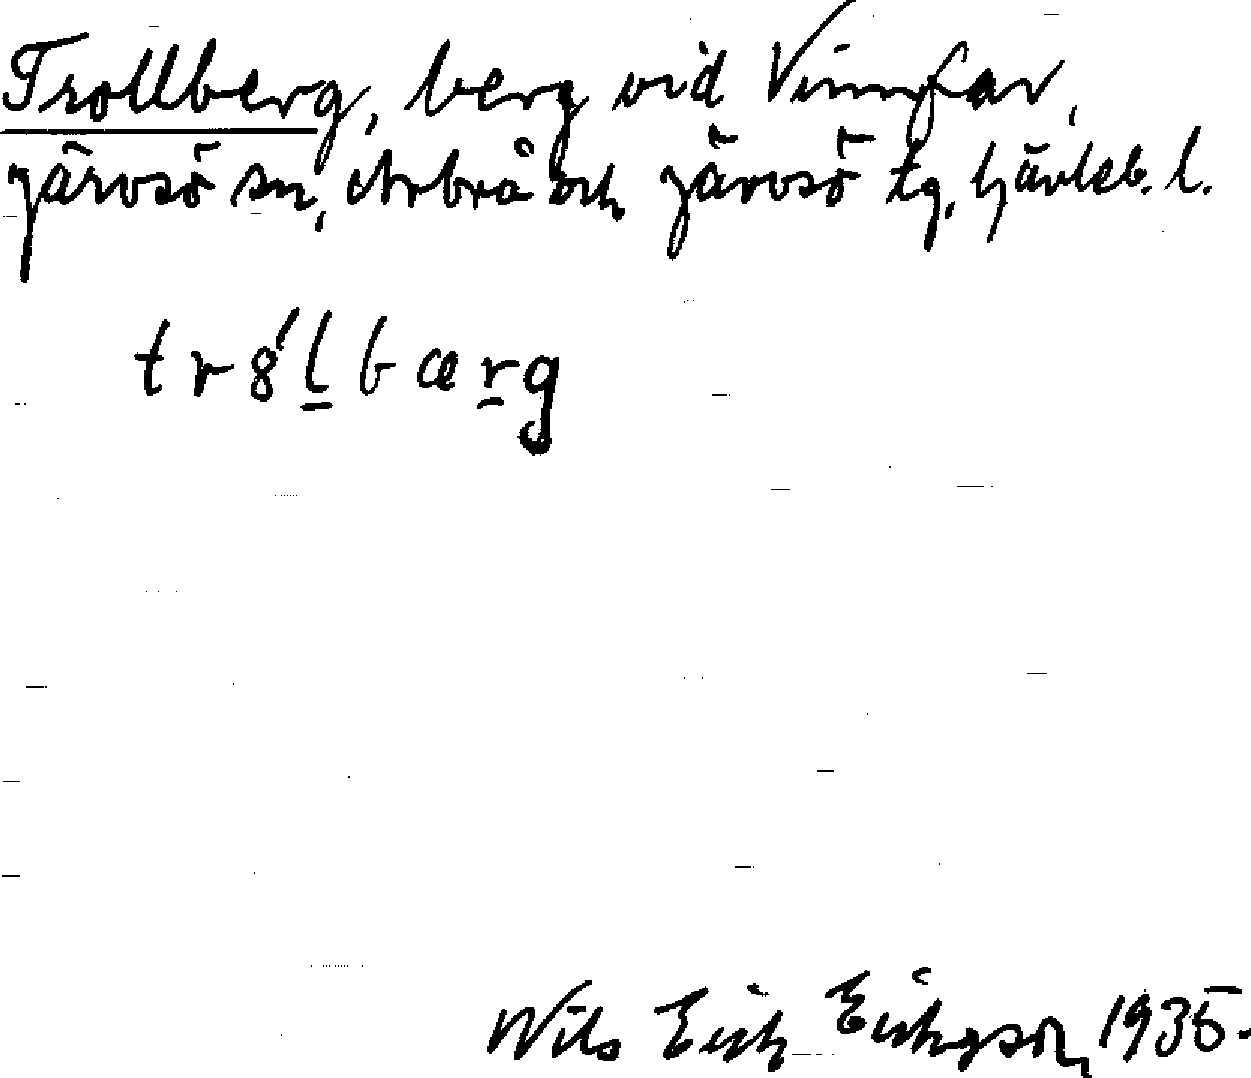 Trollberg, berg vid Vinnfar,
Järvsö sn, Arbrå och Järvsö tg, Gävleb. l.
tr8´lbærg
Nils Erik Eriksson, 1935.